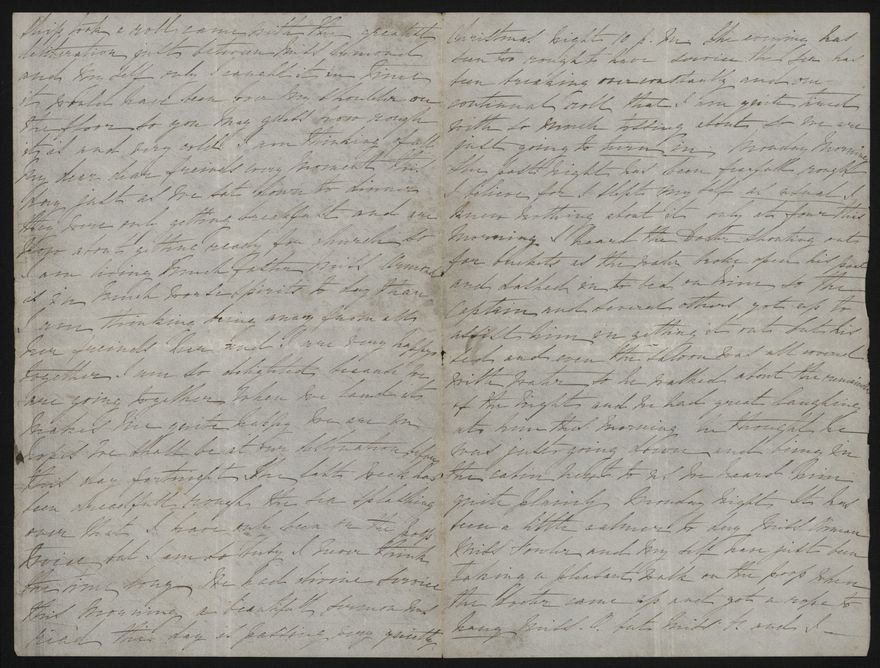 Ship took a roll came with the greatest
deliberation just between Miss Ormond
and myself only I caught it in time
it would have been over my shoulder on
the floor so you may guess how rough
it is and very cold I am thinking of all
my dear dear freinds every moment this
day just as we sat down to dinner
they were only getting breakfast and are
now about getting ready for church so
I am living much faster Miss Ormond
is in much worse spirits to day than
I am thinking being away from all
her freinds her and I are very happy
together I am so delighted because we
are going together when we land it
makes me quite happy we are in
hopes we shall be at our destination before
this day fortnight the last week has
been dreadfull rough the sea splashing
over that I have only been on the Poop
twice but I am so busy I never think
the time long We had divine service
this morning a beautifull sermon was
read this day is passing very quietly
Christmas Night 10 p.m The evening has
been too rough to have service the sea has
been breaking over constantly and one
continual roll that I am quite tired
with so much tossing about so we are
just going to turn in Monday Morning
The past night has been fearfull rough
I believe for I slept my self as usual I
knew nothing about it only at four this
morning I heard the Doctor shouting out
for buckets as the water broke open his port
and dashed in to bed on him so the
Captain and several others got up to
assist him in getting it out but his
bed and even the Saloon was all covered
with water so he walked about the remainder
of the night and we had great laughing
at him this morning he thought he
was just going down and being in
the cabin next to us we heard him
quite plainly Monday Night It has
been a little calmer to day Miss Ormond
Miss Fowler and my self have just been
taking a pleasant walk on the poop when
the Doctor came up and got a rope to
hang Miss O. but Miss F. and I